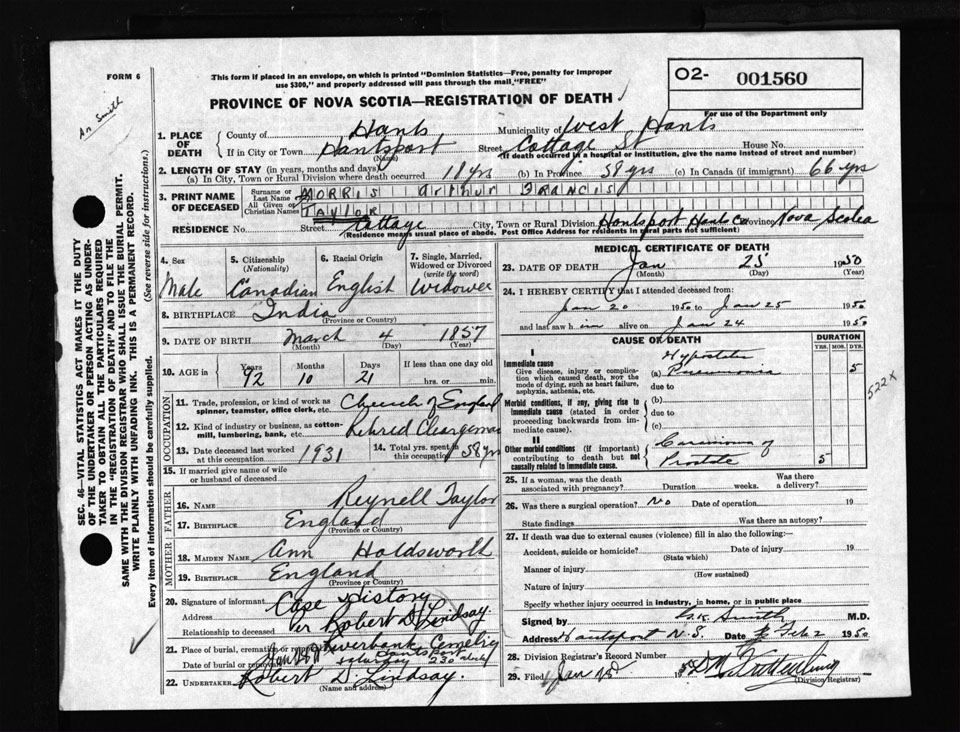 FORM 6
An Smith
This form if placed in an envelope, on which is printed "Dominion Statistics—Free, penalty for improper
use $300," and properly addressed will pass through the mail, "FREE"
PROVINCE OF NOVA SCOTIA—REGISTRATION OF DEATH
O2- 001560
For use of the Department only
SEC. 46—VITAL STATISTICS ACT MAKES IT THE DUTY
OF THE UNDERTAKER OR PERSON ACTING AS UNDER-
TAKER TO OBTAIN ALL THE PARTICULARS REQUIRED
IN THE "REGISTRATION OF DEATH" AND TO FILE THE
SAME WITH THE DIVISION REGISTRAR WHO SHALL ISSUE THE BURIAL PERMIT.
WRITE PLAINLY WITH UNFADING INK. THIS IS A PERMANENT RECORD.
Every item of information should be carefully supplied. (See reverse side for instructions.)
1. PLACE OF DEATH
County of Hants Municipality of West Hants
If in City or Town Hantsport (Name) Street Cottage St House No.
(If death occurred in a hospital or institution, give the name instead of street and number)
2. LENGTH OF STAY (in years, months and days)
(a) In City, Town or Rural Division where death occurred 18 yrs (b) In Province 58 yrs (c) In Canada (if immigrant) 66 yrs
3. PRINT NAME OF DECEASED
Surname or Last Name MORRIS Arthur FRANCIS
All Given or Christian Names TAYLOR
RESIDENCE No. Street Cottage City, Town or Rural Division Hantsport Hants Co Province Nova Scotia
(Residence means usual place of abode. Post Office Address for residents in rural parts not sufficient)
4. Sex Male
5. Citizenship (Nationality) Canadian
6. Racial Origin English
7. Single, Married, Widowed or Divorced (write the word) Widower
8. BIRTHPLACE India
(Province or Country)
9. DATE OF BIRTH March 4 1857
(Month) (Day) (Year)
10. AGE in Years 92 Months 10 Days 21 If less than one day old hrs. or min.
OCCUPATION
11. Trade, profession, or kind of work as spinner, teamster, office clerk, etc. Church of England
12. Kind of industry or business, as cotton-mill, lumbering, bank, etc. Retired Clergeman
13. Date deceased last worked at this occupation 1931
14. Total yrs. spent in this occupation 58 yrs
15. If married give name of wife or husband of deceased
FATHER
16. Name Reynell Taylor
17. Birthplace England
(Province or Country)
MOTHER
18. Maiden Name Ann Holdsworth
19. Birthplace England
(Province or Country)
20. Signature of informant Case History
Address per Robert D. Lindsay.
Relationship to deceased
21. Place of burial, cremation or removal Riverbank Cemetery
Hantsport
Date of burial or removal Saturday 2 30
22. Undertaker Robert D. Lindsay.
(Name and address)
MEDICAL CERTIFICATE OF DEATH
23. DATE OF DEATH Jan 25 1950
(Month) (Day) (Year)
24. I HEREBY CERTIFY that I attended deceased from:
Jan 20 1950 to Jan 25 1950
and last saw him alive on Jan 24 1950
CAUSE OF DEATH DURATION
YRS. MOS. DYS.
I
Immediate cause
Give disease, injury or complication which caused death, NOT the mode of dying, such as heart failure, asphyxia, asthenia, etc.
Hypostatic
(a) Pneumonia 5
due to
Morbid conditions, if any, giving rise to immediate cause (stated in order proceeding backwards from immediate cause).
(b)
due to
(c)
522 x
II
Other morbid conditions (if important) contributing to death but not causally related to immediate cause.
Carcinoma of
Prostate 5
25. If a woman, was the death associated with pregnancy? Duration weeks. Was there a delivery?
26. Was there a surgical operation? No Date of operation 19
State findings Was there an autopsy?
27. If death was due to external causes (violence) fill in also the following:—
Accident, suicide or homicide? Date of injury 19
(State which)
Manner of injury
(How sustained)
Nature of injury
Specify whether injury occurred in industry, in home, or in public place
Signed by Smith M.D.
Address Hantsport N.S. Date Feb 2 1950
28. Division Registrar's Record Number
29. Filed Jan
(Division Registrar)